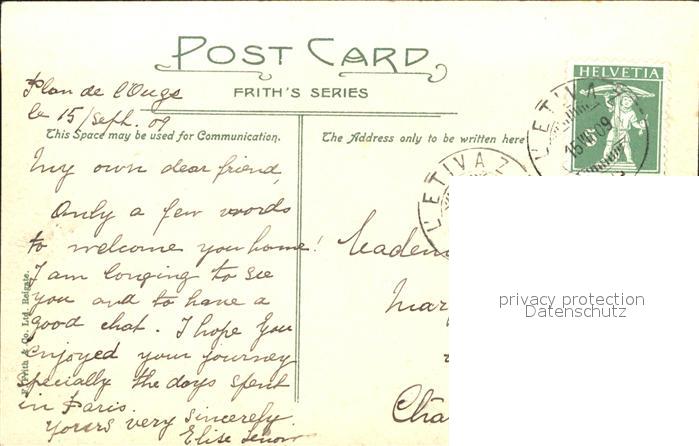 POST CARD
FRITH'S SERIES
Plan de l'Ouge
le 15/Sept. 09
This Space may be used for Communication.
The Address only to be written here
HELVETIA
L'ETIVAZ
15 IX 09
L'ETIVAZ
My own dear friend,
Only a few words
to welcome you home!
I am longing to see
you and to have a
good chat. I hope you
enjoyed your journey
specially the days spent
in Paris.
Yours very sincerely
Elise
Mary
Cha
F. Frith & Co. Ltd. Reigate.
privacy protection
Datenschutz